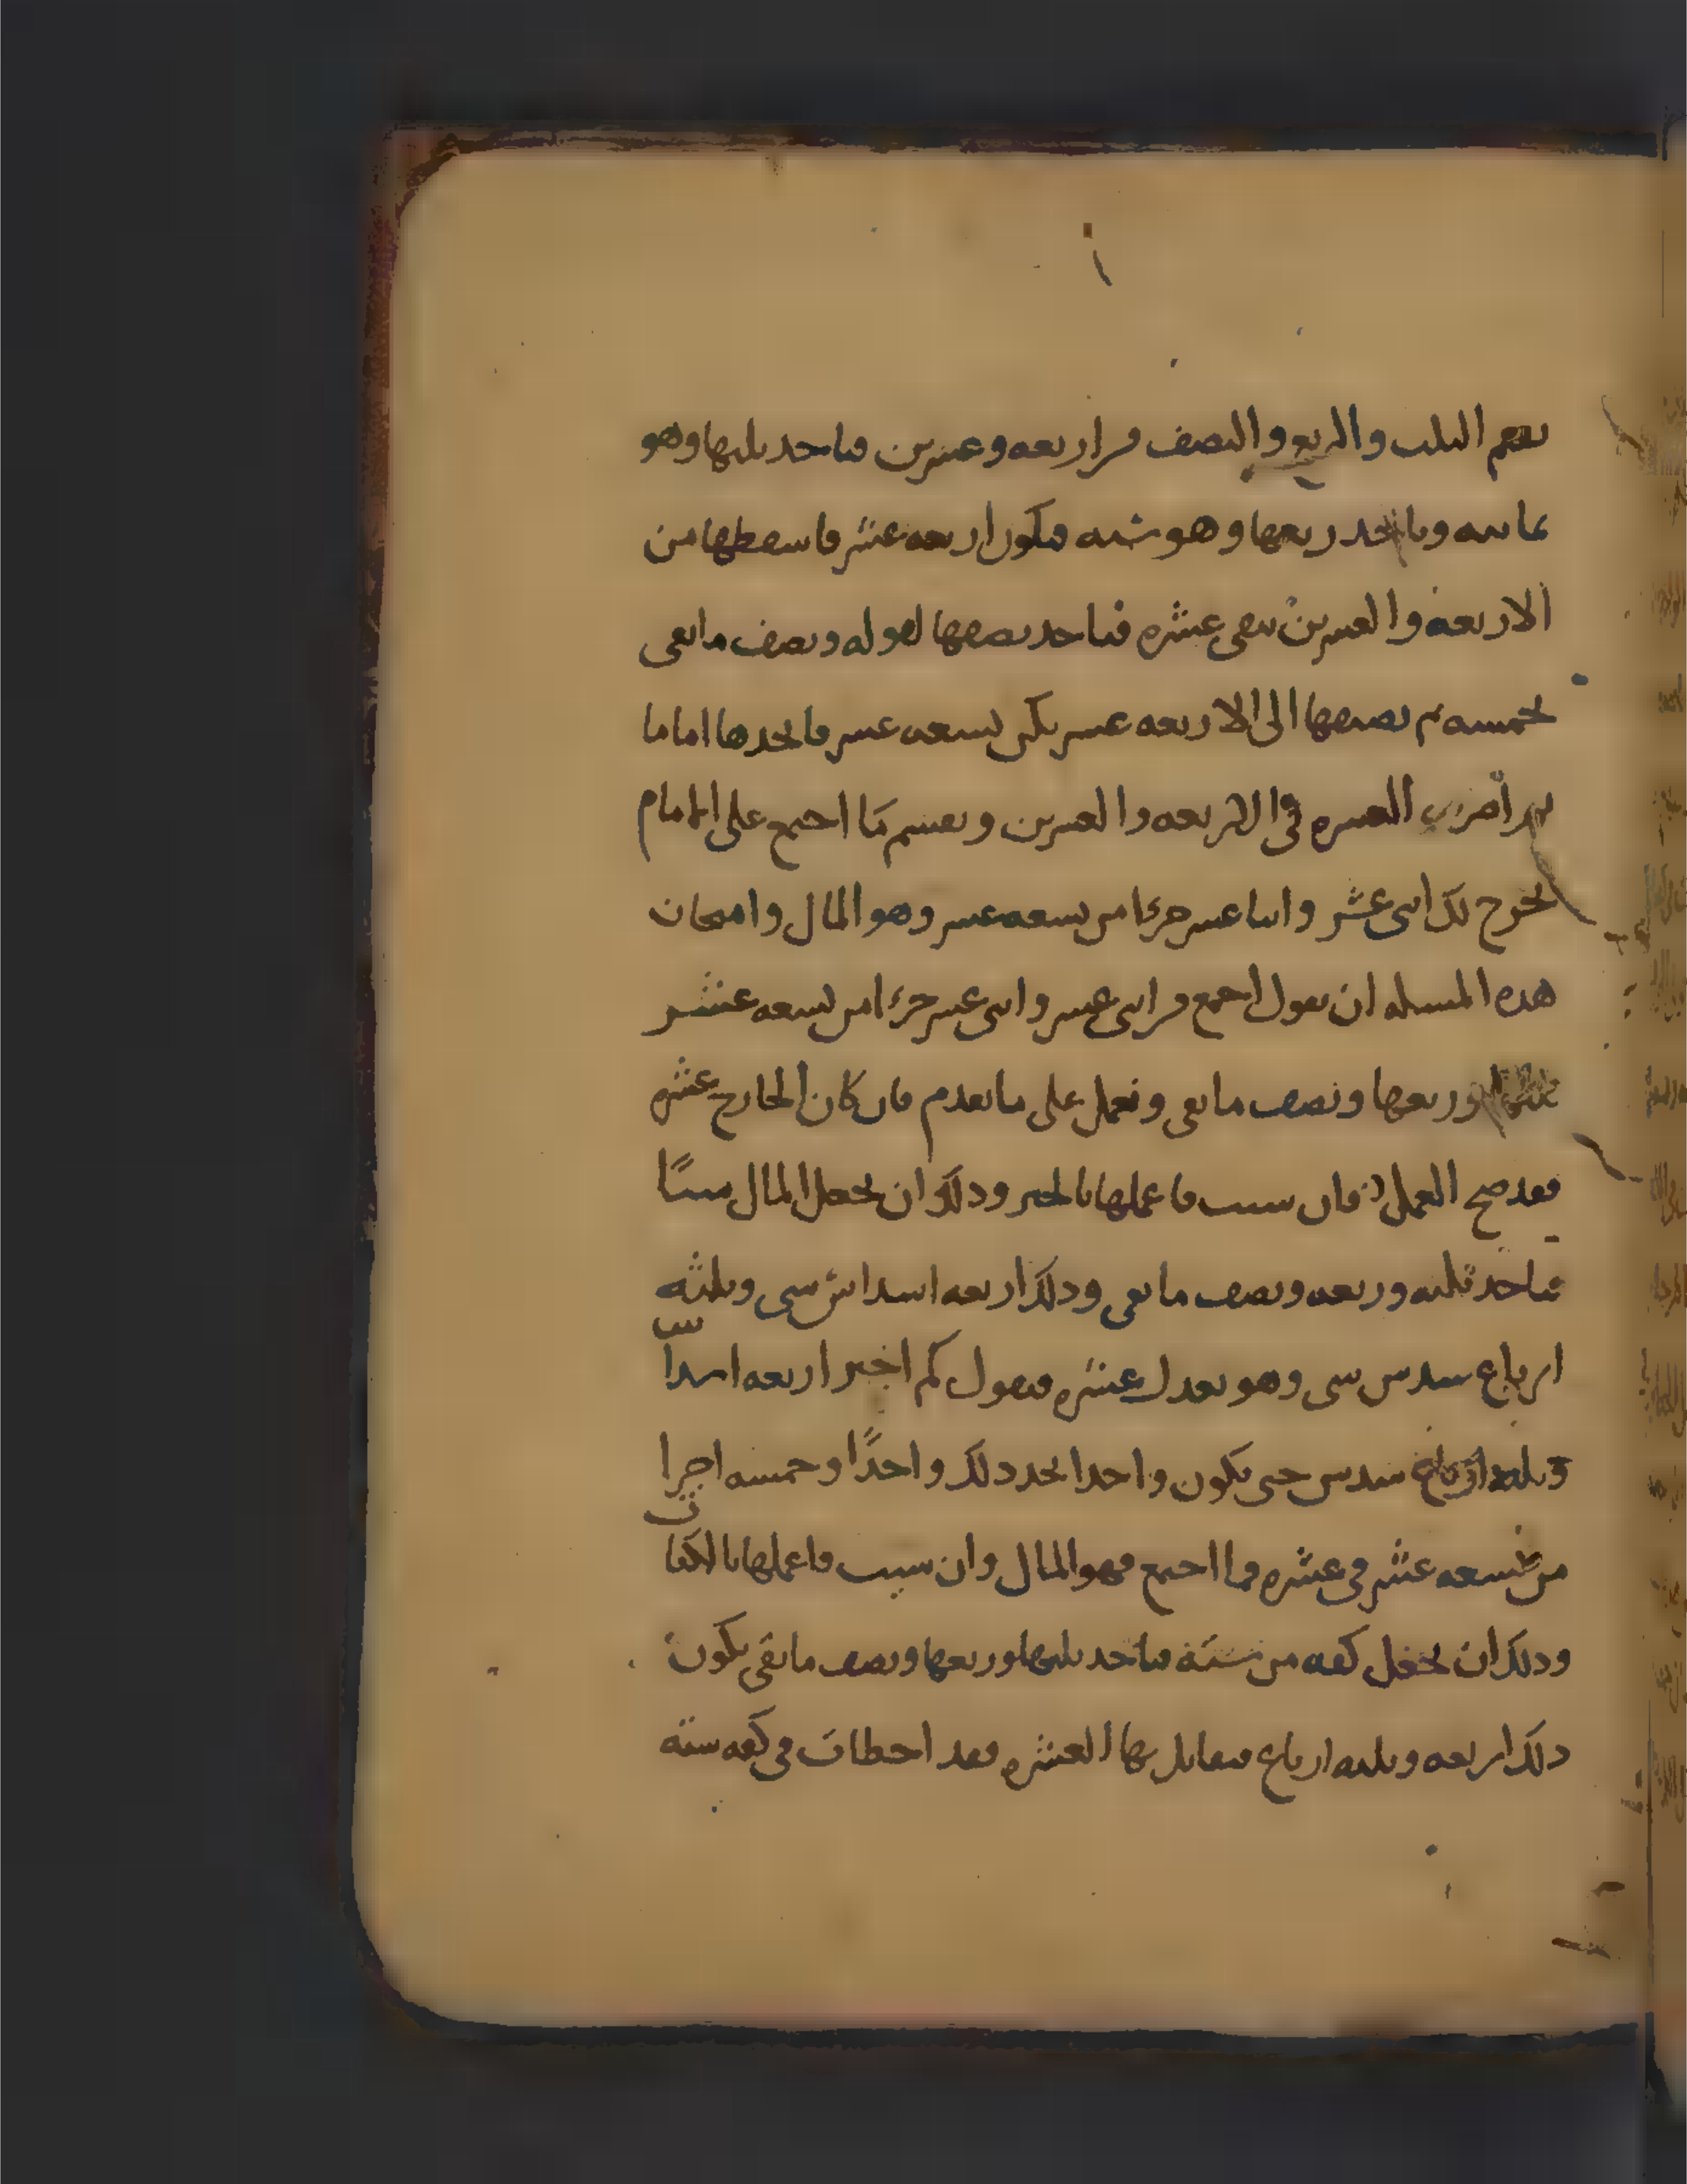 يقيم الثلث والربع والنصف من اربعه وعشرين فناخذ ثلثها وهو
ثمانيه وناخذ ربعها وهو سته فيكون اربعه عشر فاسقطها من
الاربعه والعشرين يبقى عشره فناخذ نصفها لقوله ونصف ما بقى
خمسه ثم نضيفها الى الاربعه عشر يكن تسعه عشر فاتخذها اماما
ثم اضرب العشره في الاربعه والعشرين ونقسم ما اجتمع على الامام
يخرج لك اثنى عشر واثنا عشر جزءا من تسعه عشر وهو المال وامتحان
هذه المسله ان نقول اجمع من اثنى عشر واثنى عشر جزءا من تسعه عشر
وربعها ونصف ما بقى ونعمل على ما تقدم فان كان الخارج عشره
فقد صح العمل فان شيت فاعملها بالجبر وذلك ان تجعل المال شيئًا
فناخذ ثلثه وربعه ونصف ما بقى وذلك اربعه اسداس شى وثلثه
ارباع سدس شى وهو يعدل عشره فنقول كم اجبر اربعه اسداس
وثلثه ارباع سدس حتى يكون واحدا نجد ذلك واحدًا وخمسه اجزا
من تسعه عشر في عشره فما اجتمع فهو المال وان شيت فاعملها بالكفات
وذلك ان تجعل كفه من سته فناخذ ثلثها وربعها ونصف ما بقى يكون
ذلك اربعه وثلثه ارباع فقابل بها العشره فقد اخطات في كفه سته